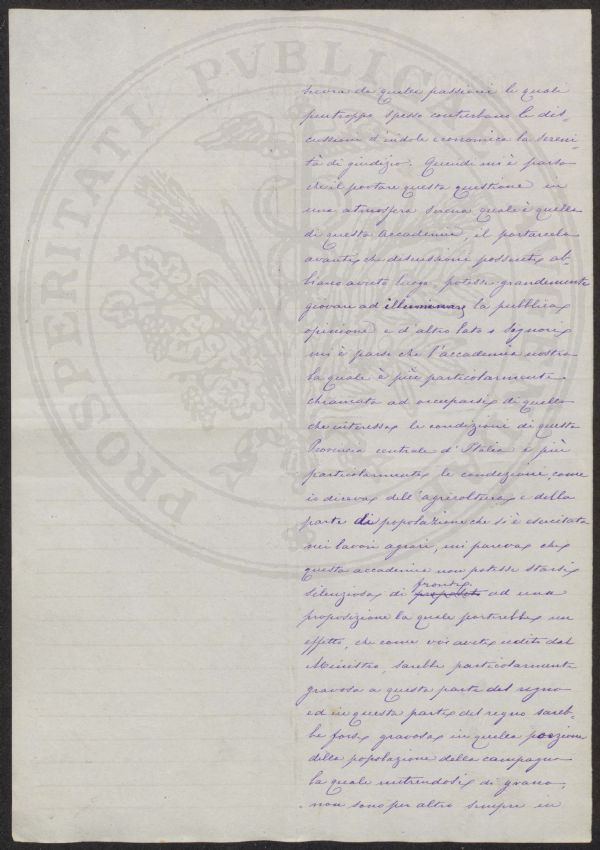 scevra da quelle passioni le quali
purtroppo spesso conturbano le dis-
cussioni d'indole economica la sereni-
tà di giudizio. Quindi mi è parso
che il portare questa questione in
una atmosfera serena quale è quella
di questa Accademia, il portarcela
avanti che discussioni possenti ab-
biano avuto luogo, potesse grandemente
giovare ad illuminare la pubblica
opinione e d'altro lato o Signori
mi è parso che l'accademia nostra
la quale è più particolarmente
chiamata ad occuparsi di quello
che interessa le condizioni di questa
Provincia centrale d'Italia e più
particolarmente le condizioni, come
io diceva dell'agricoltura e della
parte di popolazione che si è esercitata
nei lavori agrari, mi pareva che
questa accademia non potesse starsi
silenziosa di fronte ad una
proposizione la quale porterebbe un
effetto, che come voi avete udito dal
Ministro, sarebbe particolarmente
gravosa a questa parte del regno
ed in questa parte del regno sareb-
be forse gravosa in quella porzione
della popolazione della campagna
la quale nutrendosi di grano,
non sono per altro sempre in
PROSPERITATI PVBLICAE